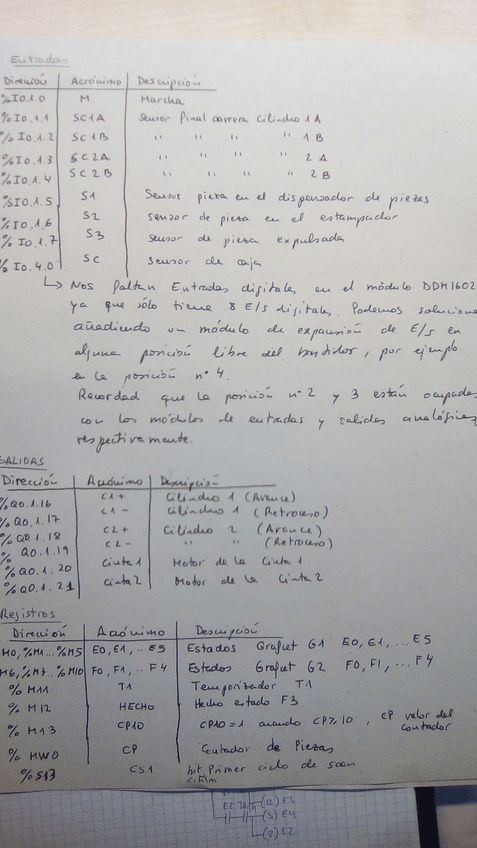 Entradas
Dirección Acrónimo Descripción
%I0.1.0 M Marcha
%I0.1.1 SC1A Sensor final carrera Cilindro 1A
%I0.1.2 SC1B " " " " 1B
%I0.1.3 SC2A " " " " 2A
%I0.1.4 SC2B " " " " 2B
%I0.1.5 S1 Sensor pieza en el dispensador de piezas
%I0.1.6 S2 sensor de pieza en el estampador
%I0.1.7 S3 sensor de pieza expulsada
%I0.4.0 SC sensor de caja
↳ Nos faltan Entradas digitales en el módulo DDM1602
ya que sólo tiene 8 E/s digitales. Podemos
añadiendo un módulo de expansión de E/s en
alguna posición libre del bastidor, por ejemplo
en la posición nº 4.
Recordad que la posición nº 2 y 3 están
con los módulos de entradas y salidas analógicas
respectivamente.
SALIDAS
Dirección Acrónimo Descripción
%Q0.1.16 C1+ Cilindro 1 (Avance)
%Q0.1.17 C1- Cilindro 1 (Retroceso)
%Q0.1.18 C2+ Cilindro 2 (Avance)
%Q0.1.19 C2- " " (Retroceso)
%Q0.1.20 Cinta1 Motor de la Cinta 1
%Q0.1.21 Cinta2 Motor de la Cinta 2
Registros
Dirección Acrónimo Descripción
M0,%M1...%M5 E0,E1,..E5 Estados Grafcet G1 E0,E1,...E5
M6,%M7..%M10 F0,F1,..F4 Estados Grafcet G2 F0,F1,...F4
%M11 T1 Temporizador T1
%M12 HECHO Hecho estado F3
%M13 CP10 CP10=1 cuando CP≥10, CP valor del contador
%MW0 CP Contador de Piezas
%S13 CS1 bit Primer ciclo de scan
E2
(S) E4
(R) E2